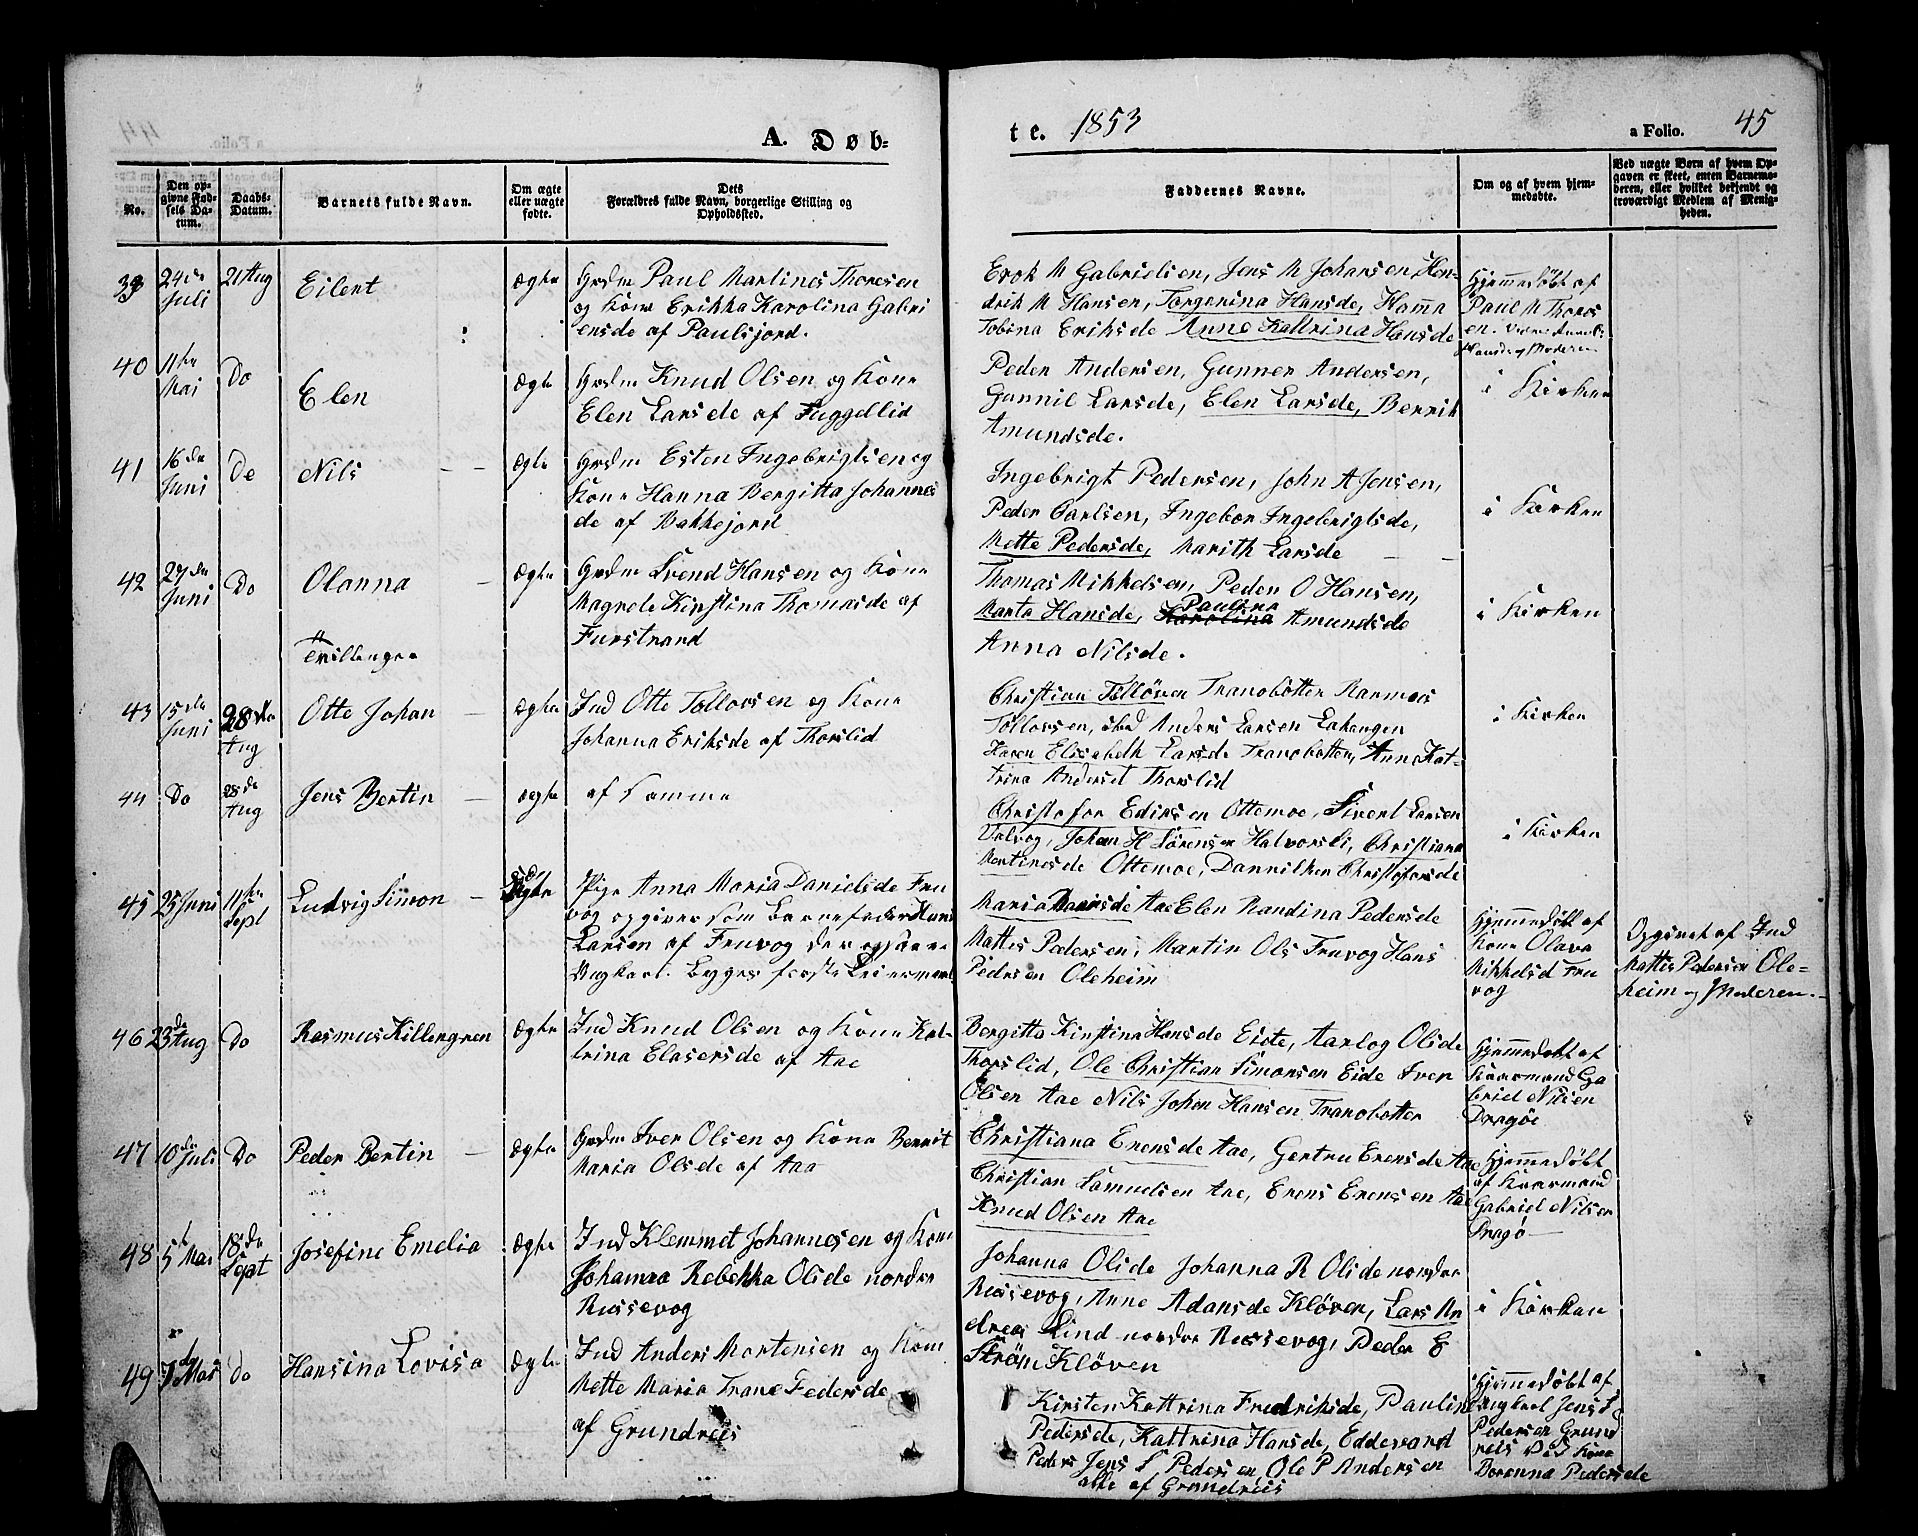 A. Døb-
te. 1853
a Folio. 45
No.
Den opgivne Fødsels Datum.
Daabs-Datum.
Barnets fulde Navn.
Om ægte eller uægte fødte.
Dets Forældres fulde Navn, borgerlige Stilling og Opholdssted.
Faddernes Navne.
Om og af hvem hjemmedøbte.
Ved uægte Børn af hvem Opgaven er skeet, enten Barnemoderen, eller hvilket bekjendt og troværdigt Medlem af Menigheden.
39 24de Juli 21 Aug Eilert ægte
Grdm Paul Martines Thoresen
og Kone Erikka Karolina Gabri
elsde af Paulsjord.
M Gabrielsen, Jens M Johansen, Hen-
drik M Hansen, Torgerina Hansde, Hanna
Tobina Eriksde Anne Kattrina Hansde
Hjemmedøbt af
Paul M Thores
en.
Hansde og Moderen
40 11te Mai Do Elen Ægte
Grdm Knud Olsen og Kone
Elen Larsde af Fuggellid
Peder Andersen, Gunner Andersen,
Gunnil Larsde, Elen Larsde, Berrit
Amundsde.
i Kirken
41 16de Juni Do Nils - - Ægte
Grdm Esten Ingebrigtsen og
Kone Hanna Bergitta Johannes
de af Bakkejord
Ingebrigt Pedersen, John A Jensen,
Peder Carlsen, Ingebor Ingebrigtsde,
Mette Pedersde, Marith Larsde
i Kirken
42 27de Juni Do Olanna - Ægte
Grdm Svend Hansen og Kone
Magrele Kirstina Thomasde af
Furstrand
Thomas Mikkelsen, Peder O Hansen,
Marta Hansde, Karolina Paulina Amundsde
Anna Nilsde.
i Kirken
Tvillinger
43 15de Juni 28de Aug Otte Johan - ægte
Ind Otte Tollovsen og Kone
Johanna Eriksde af Thorslid
Christian Tolløven Tranobotten Rasmus
Tollovsen, Anders Larsen Lakangen
Karen Elisabeth Larsde Tranobotten, Anne Kat-
trina Andersd Thorslid
i Kirken
44 Do 28de Aug Jens Bertin - ægte
af Samme
Christofer Ottemoe, Sivert Larsen
Valvog, Johan H Sørensen Halvorsli, Christiana
Martinesde Ottemoe, Danniken Christofersde
i Kirken
45 25 Juni 11te Sept Ludvig Simon - Uægte
Pige Anna Maria Danielsde Fru
vog opgiver som Barnefader Hans
Larsen af Fruvog der ogsaa er
Ungkarl. Begges første Leiermaal
Maria Aae Elen Randina Pedersde
Mattis Pedersen, Martin Ols Fruvog Hans
Pedersen Oleheim
Hjemmedøbt af
Kone Olava
Mikkelsd Fru
vog
Opgivet af Ind
Mattis Pedersen Ole-
heim og Moderen.
46 23de Aug Do Rasmus Killengren ægte
Ind Knud Olsen og Kone Kat-
trina Elasersde af Aae
Bergitta Kirstina Hansde Eide, Aarlog Olsde
Thorslid, Ole Christian Simonsen Eide Iver
Olsen Aae Nils Johan Hansen Tranobotten
Hjemmedøbt af
Kaarmand Ga
briel Nilsen
Dragøe
47 10de Juli Do Peder Bertin - Ægte
Grdm Iver Olsen og Kone Berrit
Maria Olsde af Aae
Christiana Erensde Aae, Gertru Erensde Aae
Christian Samuelsen Aae, Erens Erensen Aae
Knud Olsen Aae
Hjemmedøbt
af Kaarmand
Gabriel Nilsen
Dragø
48 5t Mai 18de Sept Josefine Emelia Ægte
Ind Klemmet Johannesen og Kone
Johanna Rebekka Olsde nordre
Russevog
Johanna Olsde Johanna R Olsde nordre
Russevog, Anne Adansde Kløven, Lars An
dreas Lind nordre Russevog, Peder E
Strøm Kløven
i Kirken
49 7de Mai do Hansina Lovisa Ægte
Ind Anders Mortensen og Kone
Mette Maria Trane Pedersde
af Grundreis
Kirsten Kattrina Fredriksde, Paulin
Pedersde, Kattrina Hansde, Eddevard
Peders Jens S Pedersen, Ole P Andersen
alle af Grundreis
Hjemmedøbt af
Ungkarl Jens S
Pedersen Grund
reis
Berenna Pedersde